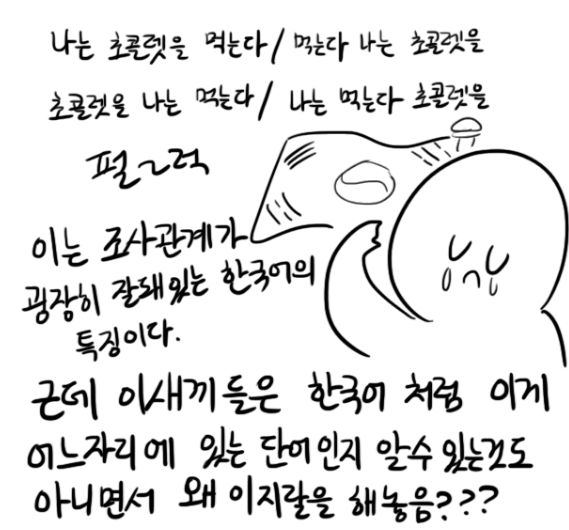 나는 초콜렛을 먹는다 / 먹는다 나는 초콜렛을
초콜렛을 나는 먹는다 / 나는 먹는다 초콜렛을
펄~럭
이는 조사관계가
굉장히 잘돼있는 한국어의
특징이다.
근데 이새끼들은 한국어 처럼 이게
어느자리에 있는 단어인지 알수 있는것도
아니면서 왜 이지랄을 해놓음???